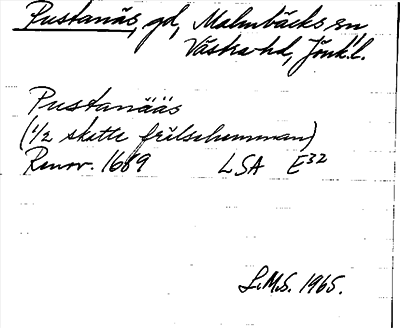 Pustanäs, gd, Malmbäcks sn
Västra hd, Jönk. l.
Pustanääs
(1/2 skatte frälsehemman)
Renov. 1689 LSA E32
L.M.S. 1965.